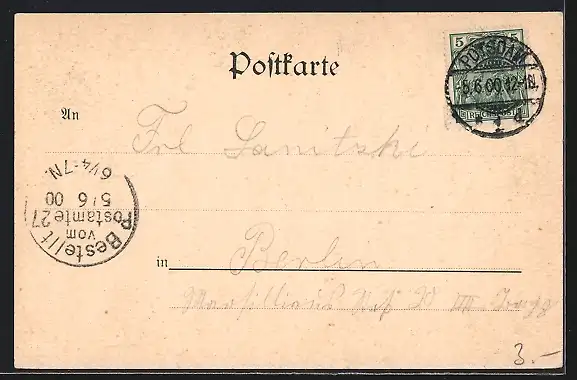 Postkarte
5 5
REICHSPOST
POTSDAM
5.6.00.12-1N.
* 1 d
An
Frl Sanitzki
6¼-7N.
5/6 00
Postamte 27
vom
Bestellt
in Berlin
III
3.-